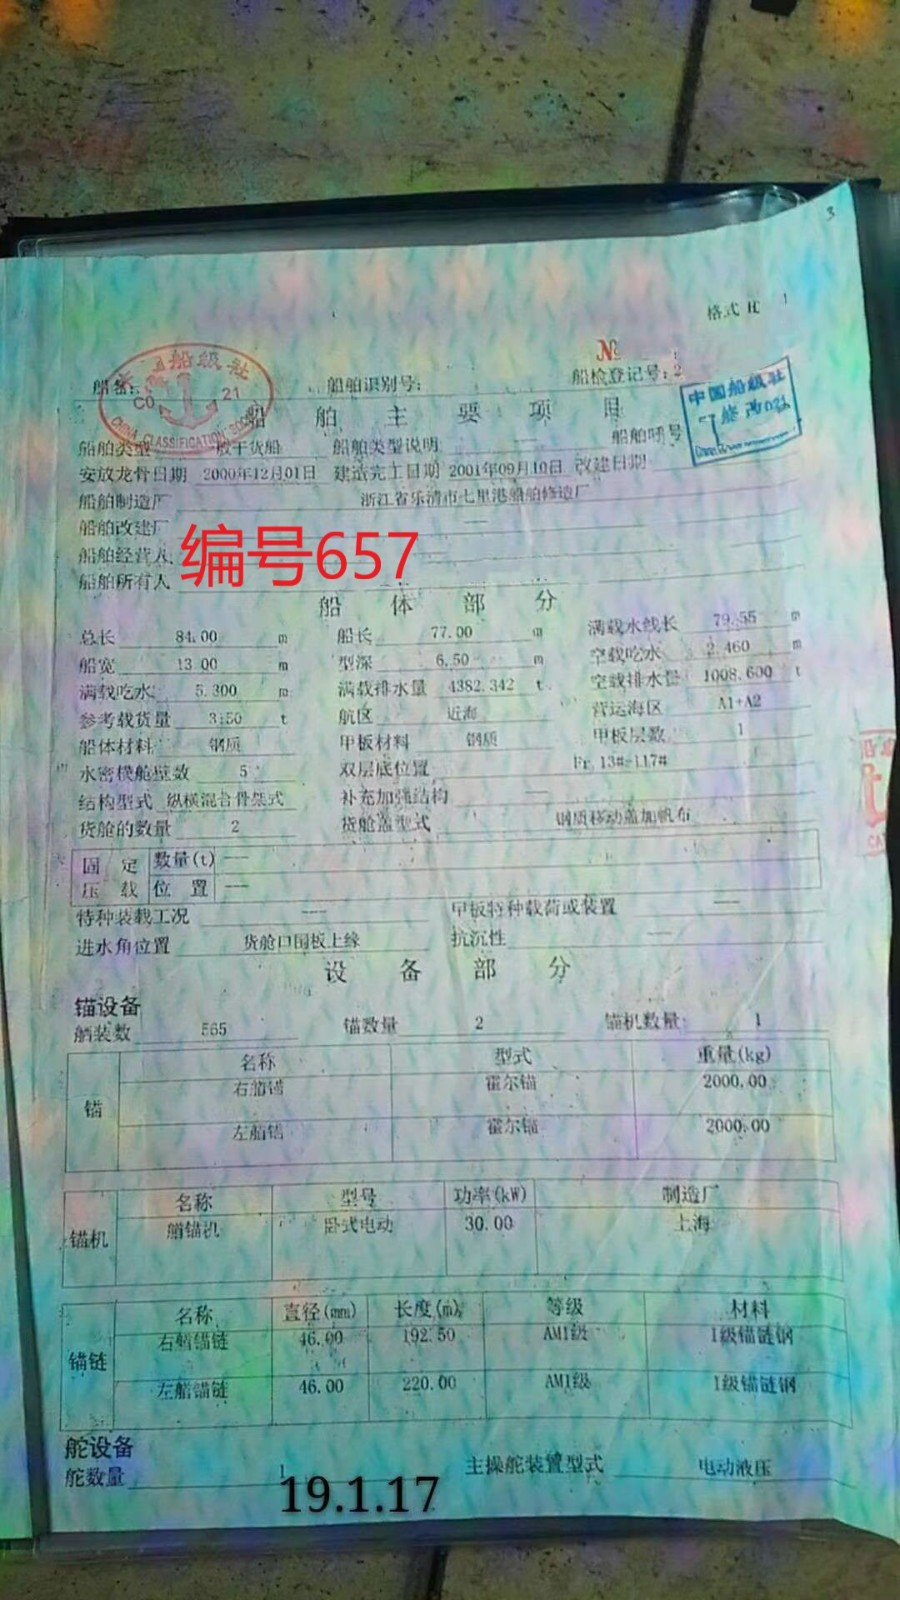 3
格式 H
№
船名: 船舶识别号: 船检登记号: 2
船级社
C0 21
CHINA CLASSIFICATION SOCIETY
中国船级社
船舶主要项目
船舶类型 一般干货船 船舶类型说明 — 船舶呼号
安放龙骨日期 2000年12月01日 建造完工日期 2001年09月10日 改建日期
船舶制造厂 浙江省乐清市七里港船舶修造厂
船舶改建厂 —
船舶经营人
编号657
船舶所有人
船体部分
总长 84.00 m 船长 77.00 m 满载水线长 79.55 m
船宽 13.00 m 型深 6.50 m 空载吃水 2.460 m
满载吃水 5.300 m 满载排水量 4382.342 t 空载排水量 1008.600 t
参考载货量 3150 t 航区 近海 营运海区 A1+A2
船体材料 钢质 甲板材料 钢质 甲板层数 1
水密横舱壁数 5 双层底位置 Fr.13#-117#
结构型式 纵横混合骨架式 补充加强结构 —
货舱的数量 2 货舱盖型式 钢质移动盖加帆布
固定 数量(t) —
压载 位置 —
特种装载工况 — 甲板特种载荷或装置 —
进水角位置 货舱口围板上缘 抗沉性 —
设备部分
锚设备
舾装数 565 锚数量 2 锚机数量 1
名称 型式 重量(kg)
锚
右艏锚 霍尔锚 2000.00
左艏锚 霍尔锚 2000.00
名称 型号 功率(kW) 制造厂
锚机
艏锚机 卧式电动 30.00 上海
名称 直径(mm) 长度(m) 等级 材料
锚链
右艏锚链 46.00 192.50 AM1级 1级锚链钢
左艏锚链 46.00 220.00 AM1级 1级锚链钢
舵设备
舵数量 1 主操舵装置型式 电动液压
19.1.17